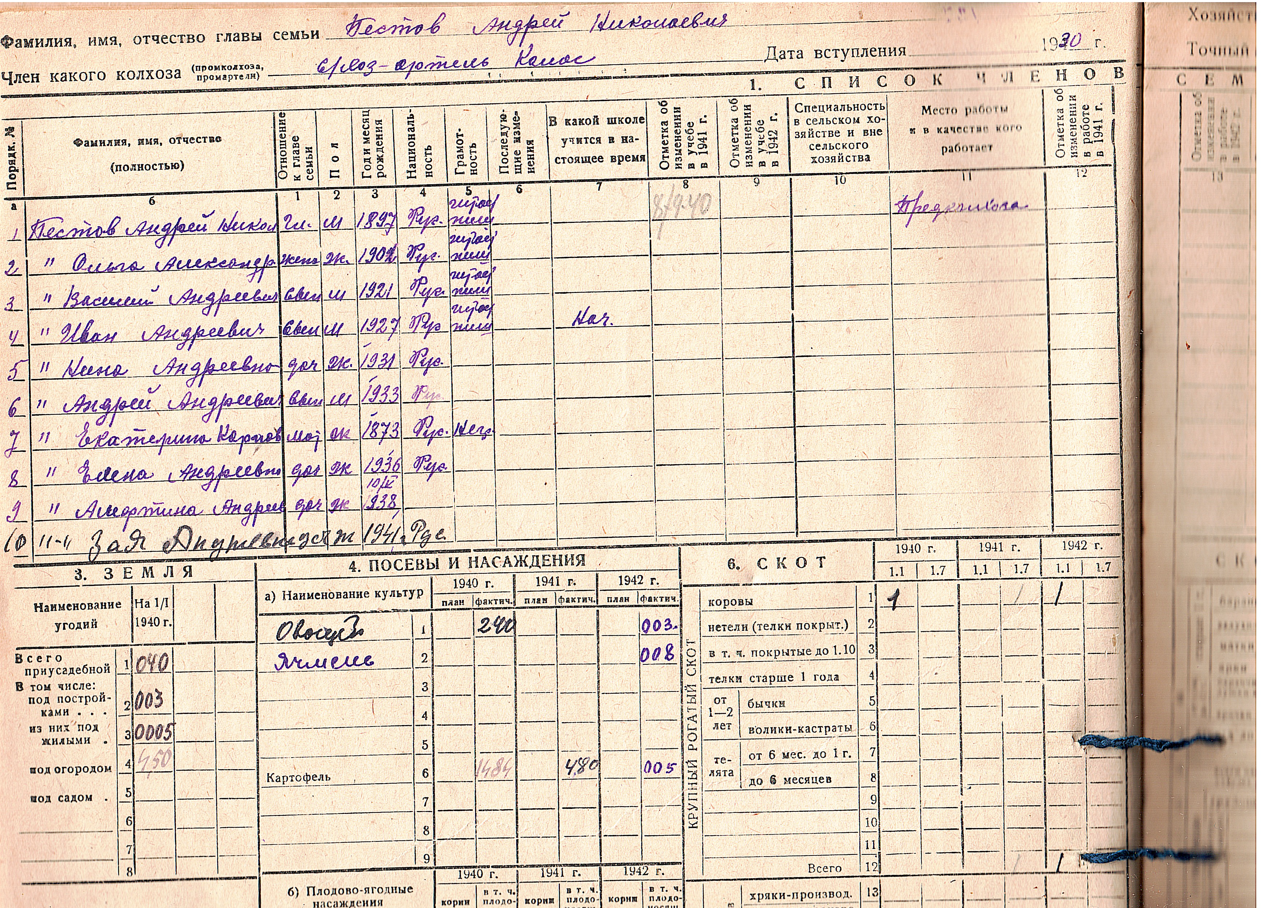 Фамилия, имя, отчество главы семьи Пестов Андрей Николаевич
Член какого колхоза (промколхоза, промартели) с/хоз-артель Колос Дата вступления 1930 г.
1. СПИСОК ЧЛЕНОВ
Порядк. №
Фамилия, имя, отчество (полностью)
Отношение к главе семьи
Пол
Год и месяц рождения
Националь-ность
Грамот-ность
Последую-щие изме-нения
В какой школе учится в на-стоящее время
Отметка об изменении в учебе в 1941 г.
Отметка об изменении в учебе в 1942 г.
Специальность в сельском хо-зяйстве и вне сельского хозяйства
Место работы и в качестве кого работает
Отметка об изменении в работе в 1941 г.
а б 1 2 3 4 5 6 7 8 9 10 11 12
1 Пестов Андрей Никол гл. м 1897 Рус.
2 " Ольга Александр жена ж. 1902 Рус.
3 " Василий Андреевич м 1921 Рус.
4 " Иван Андреевич м 1927 Рус Нач.
5 " Нина Андреевна доч ж. 1931 Рус.
6 " Андрей Андреевич м 1933 Рус.
7 " Екатерина мат ж 1873 Рус. Негр.
8 " Елена Андреевна доч ж 1936 Рус
9 " Андреев доч ж 1938
10 "-" Зоя Андреевна ж 1941 Рус.
3. ЗЕМЛЯ
Наименование угодий На 1/I 1940 г.
Всего приусадебной 1 040
В том числе: под построй-ками . . . 2 003
из них под жилыми . 3 0005
под огородом 4 450
под садом . 5
6
7
8
4. ПОСЕВЫ И НАСАЖДЕНИЯ
а) Наименование культур 1940 г. 1941 г. 1942 г.
план фактич. план фактич. план фактич.
Овощи 1 240 003.
Ячмень 2 008
3
4
5
Картофель 6 1484 480 005
7
8
9
б) Плодово-ягодные насаждения 1940 г. 1941 г. 1942 г.
корни в т. ч. плодо- корни в т. ч. плодо- корни в т. ч. плодо-
6. СКОТ
1940 г. 1941 г. 1942 г.
1.1 1.7 1.1 1.7 1.1 1.7
КРУПНЫЙ РОГАТЫЙ СКОТ
коровы 1 1 1 1
нетели (телки покрыт.) 2
в т. ч. покрытые до 1.10 3
телки старше 1 года 4
от 1—2 лет бычки 5
волики-кастраты 6
те-лята от 6 мес. до 1 г. 7
до 6 месяцев 8
9
10
11
Всего 12 1 1
хряки-производ. 13
Хозяйств
Точный
СЕМ
13